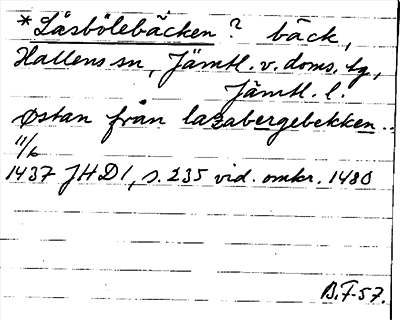 *Låsbölebäcken? bäck,
Hallens sn, Jämtl. v. doms. tg,
Jämtl. l.
Østan från lazabergebekken..
11/6
1437 JHD1, s. 235 vid. omkr. 1480
B.F-57.